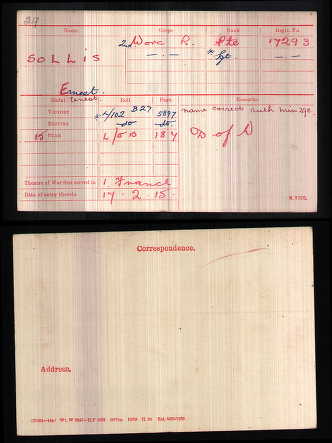 Name.
Corps.
Rank
Regtl. No.
SOLLIS
2nd Worc R.
Pte
17293
— · —
* Sgt
— · —
Ernest.
Medal
Roll
Page
Remarks
Ernest.
VICTORY
*4/102 B27
5887
name correct auth
BRITISH
do
do
15 STAR
L/8 B
184
D of D
Theatre of War first served in
1 France
Date of entry therein
17 · 2 · 15 ·
K. 1380.
Correspondence.
Address.